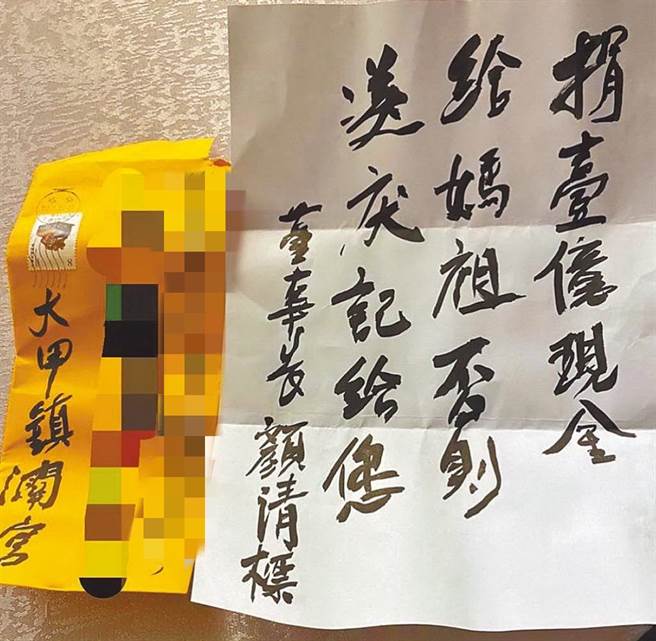 捐壹億現金
給媽祖否則
送庆記給您
董事長 顏清標
大甲鎮瀾宮
8